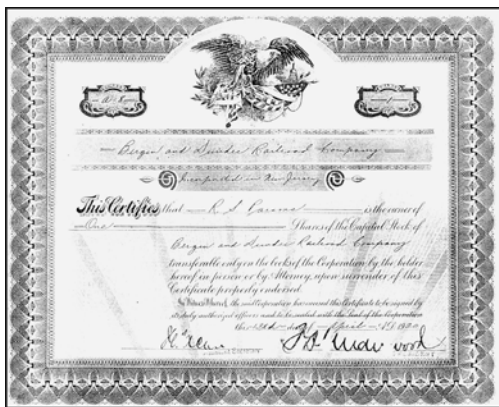 Bergen and Dundee Railroad Company
Incorporated in New Jersey
This Certifies that R. S. is the owner of
One Shares of the Capital Stock of
Bergen and Dundee Railroad Company
transferable only on the books of the Corporation by the holder
hereof in person or by Attorney, upon surrender of this
Certificate properly endorsed.
In Witness Whereof, the said Corporation has caused this Certificate to be signed by
its duly authorized officers and to be sealed with the Seal of the Corporation
this day of April 1900